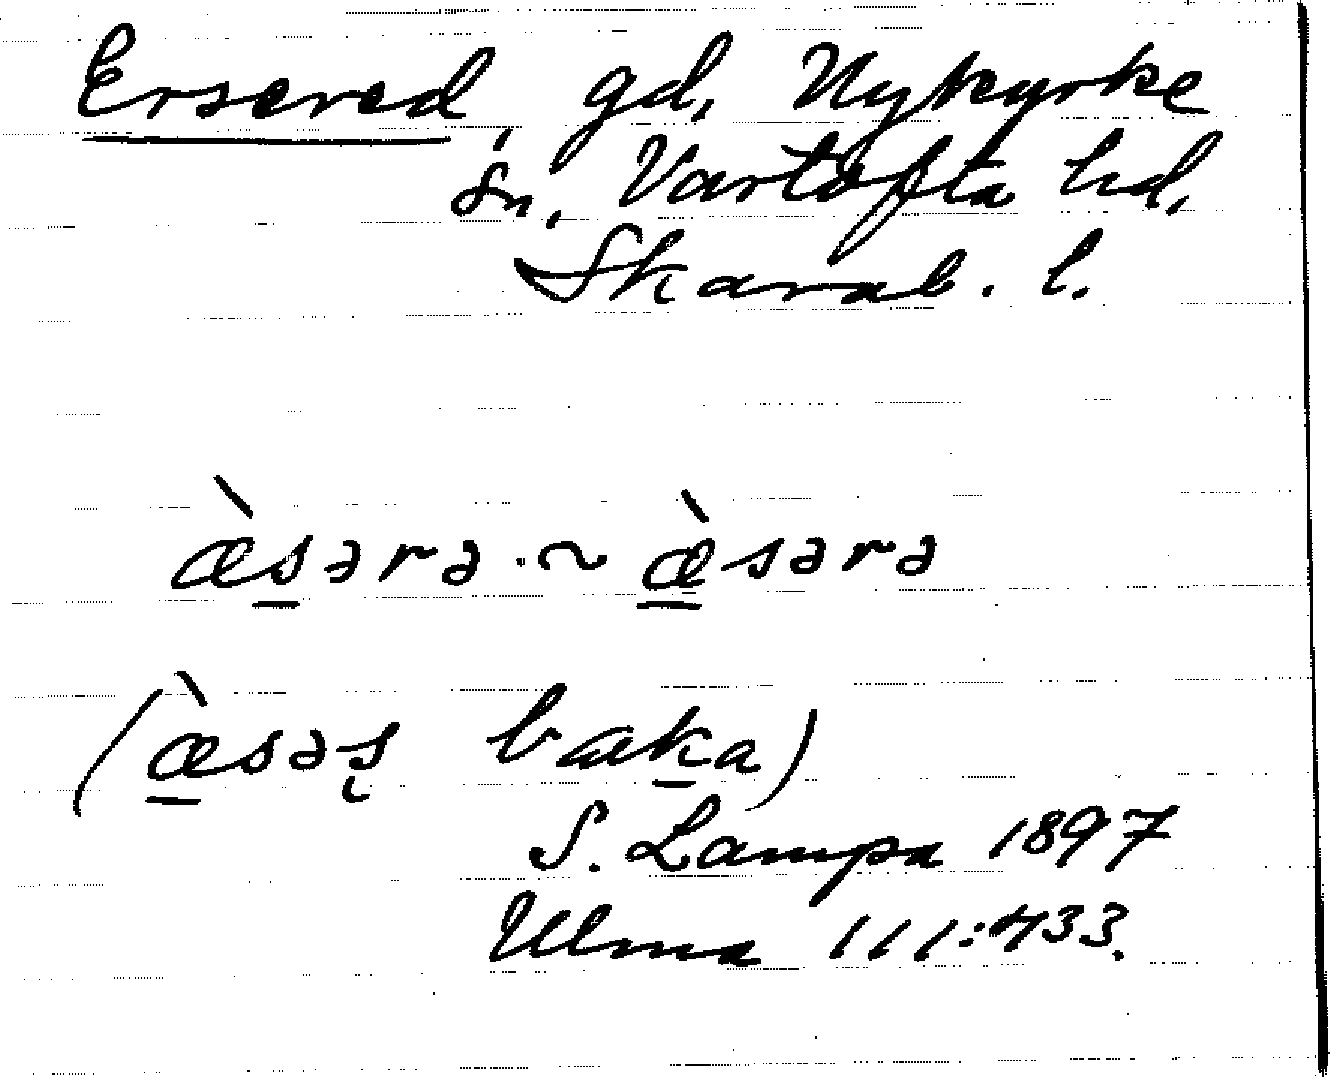 Ersered, gd, Nykyrke
sn, Vartofta hd,
Skarab. l.
æ̀s̲ərə. ~ æ̲̀sərə
(æ̲̀səş bak̲a)
S. Lampa 1897
Ulma 111:433.